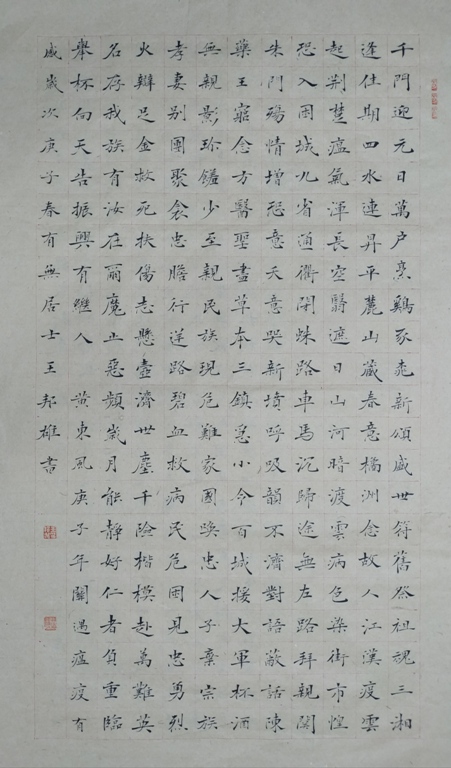 千門迎元日萬户烹鷄豕新頌盛世符舊祭祖魂三湘
逢仕期四水連昇平麓山藏春意橘洲念故人江漢疫雲
起荆楚瘟氣渾長空翳遮日山河暗渡雲病色染街市惶
恐入困城九省通衢閉蛛路車馬沉歸途無左路拜親閣
朱門殤情增恐意天意哭新墳呼吸韻不濟對語敞話陳
藥王窮念方醫聖書草本三鎮急小令百城接大軍杯酒
無親影珍饈少至親民族現危難家國喚忠人子棄宗族
孝妻别團聚衾忠膽行逆路碧血救病民危困見忠勇烈
火辯足金救死扶傷志懸壺濟世塵千險楷模赴萬難英
名存我族有汝在魔止惡頻歲月能静好仁者負重臨
舉杯向天告振興有繼人 黄東風庚子年關遇瘟疫有
感歲次庚子春有無居士王邦雄書